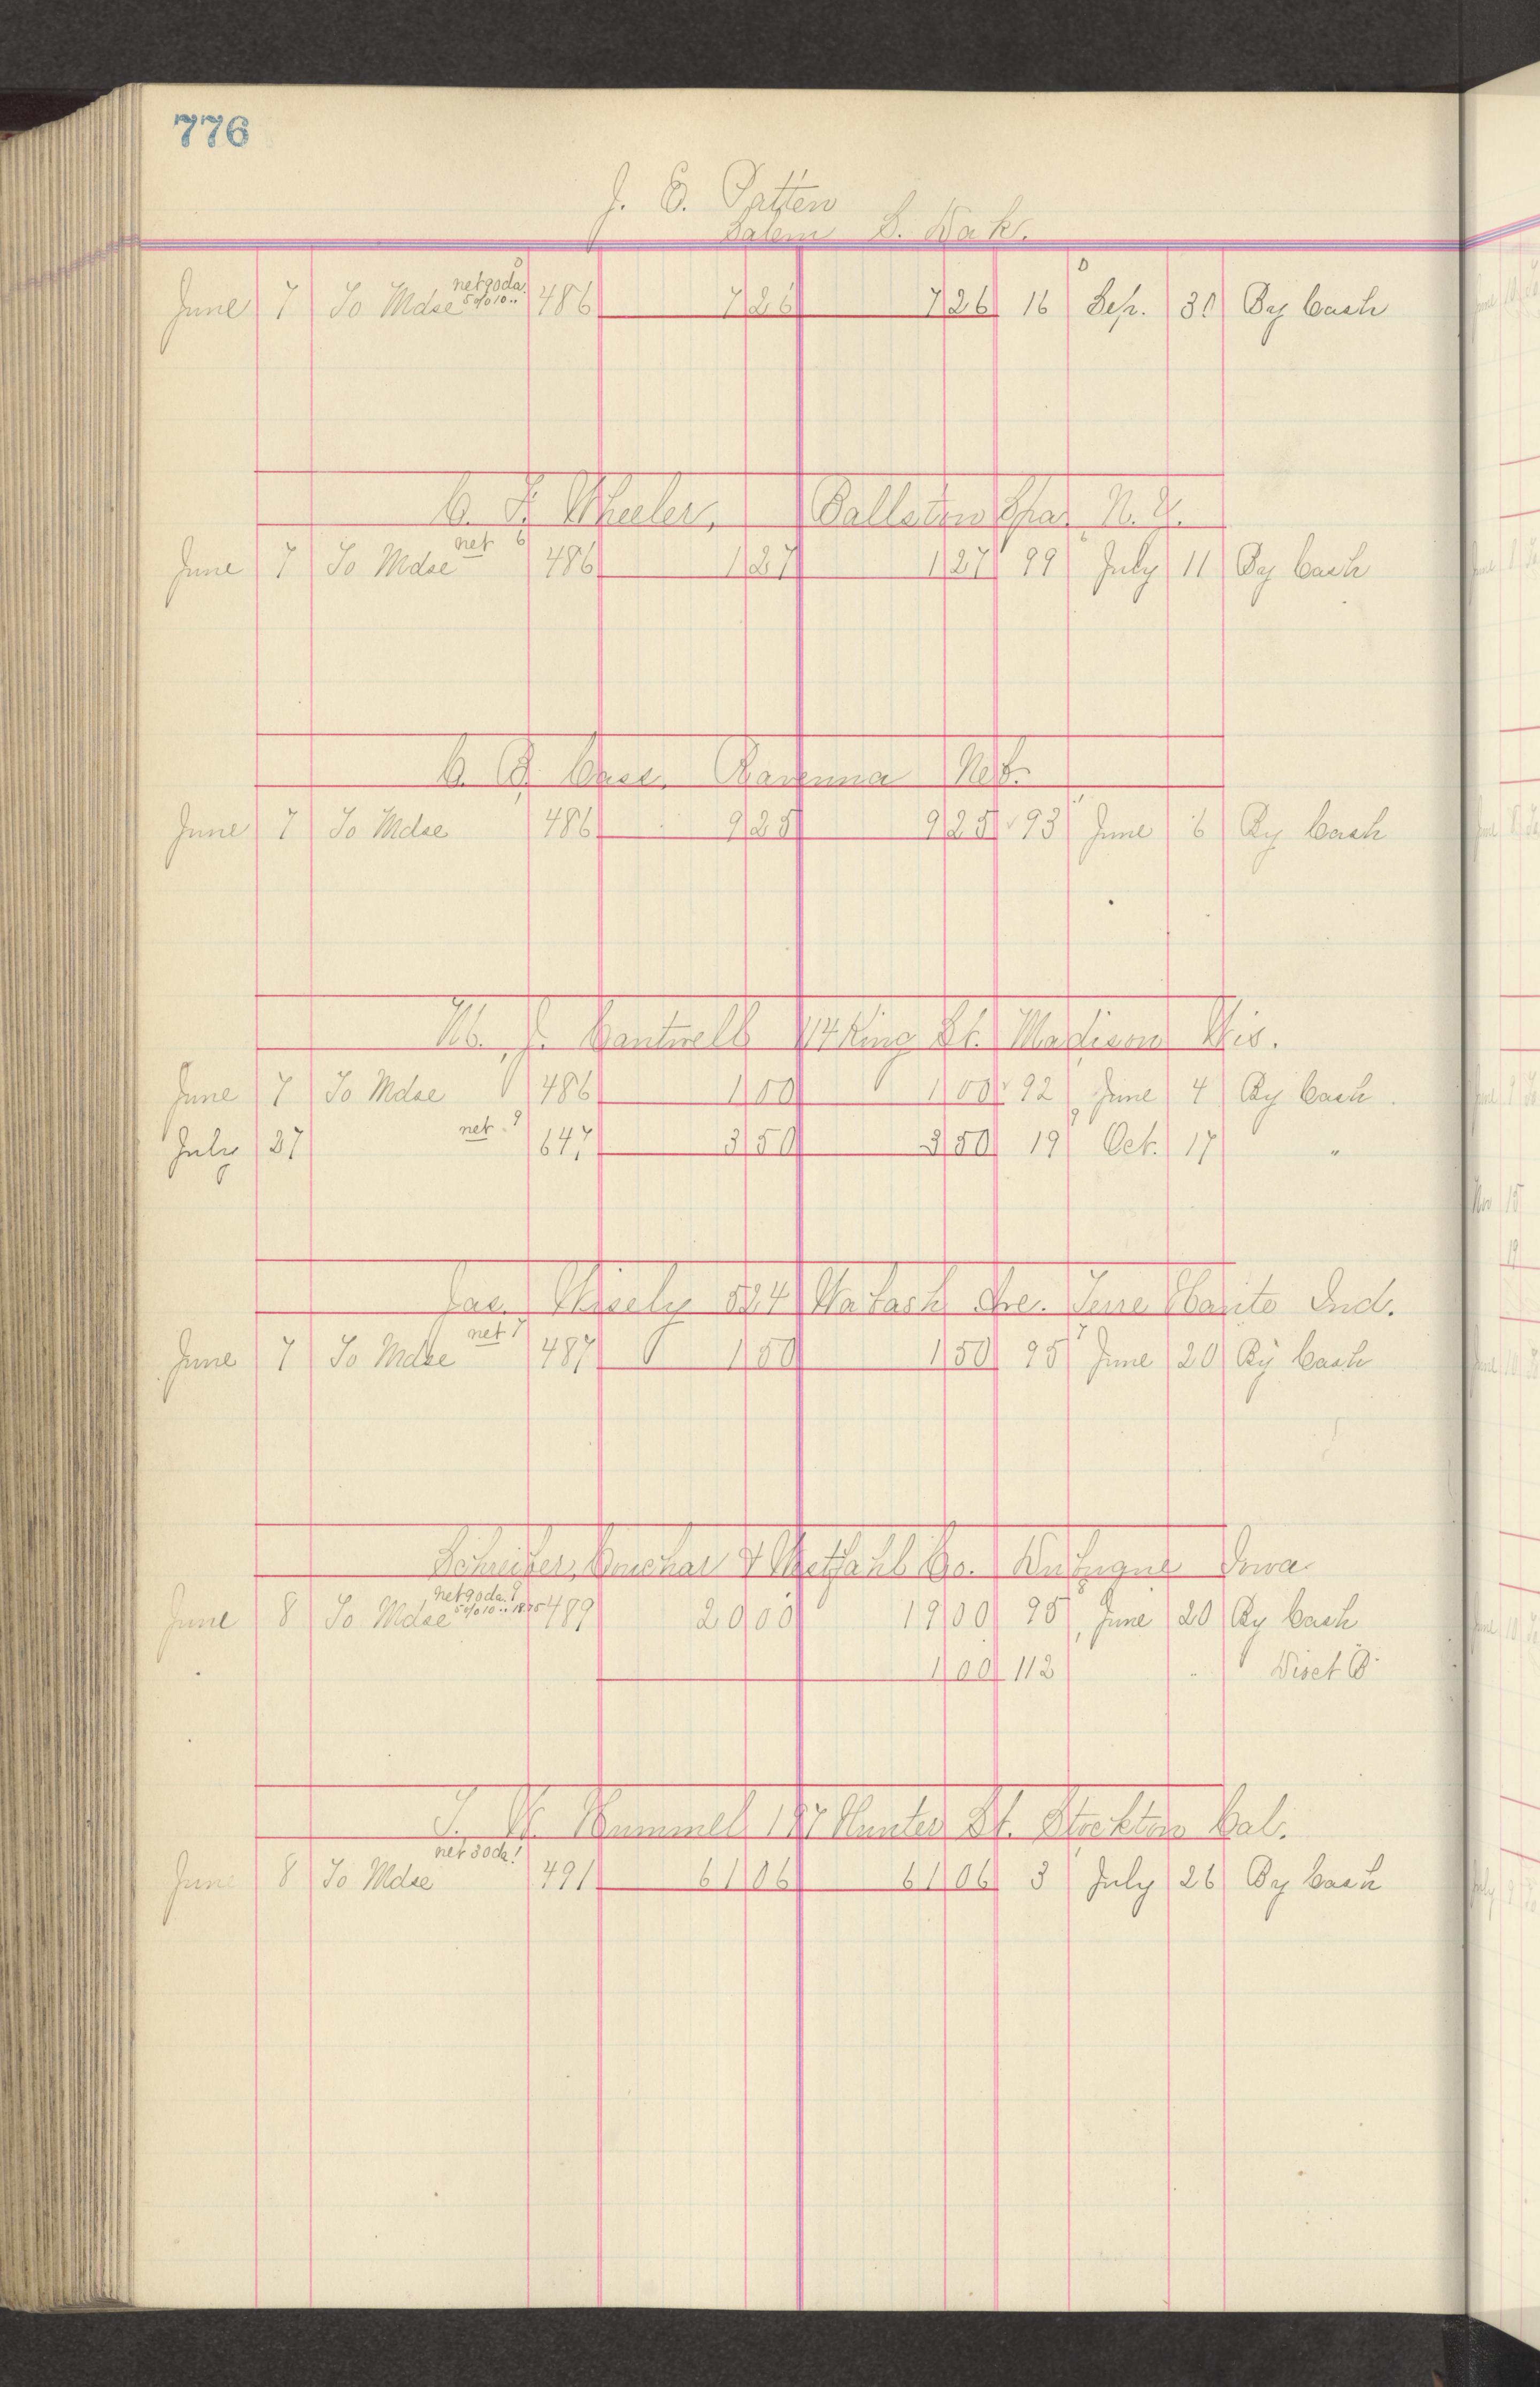 776
J. E. Patten
Salem S. Dak.
June 7 To Mdse net 90 da. 5 % 10 .. 486 7 26 7 26 16 Sep. 30 By Cash
C. F. Wheeler, Ballston Spa, N. Y.
June 7 To Mdse net 6 486 1 27 1 27 99 July 11 By Cash
C. B. Case, Ravenna Neb.
June 7 To Mdse 486 9 25 9 25 93 June 6 By Cash
M. J. Cantwell 114 King St. Madison Wis.
June 7 To Mdse 486 1 00 1 00 92 June 4 By Cash
July 27 net 9 647 3 50 3 50 19 Oct. 17 "
Jas. Wisely 524 Wabash Ave. Terre Haute Ind.
June 7 To Mdse net 7 487 1 50 1 50 95 June 20 By Cash
Schreiber, Conchar & Westphal Co. Dubuque Iowa
June 8 To Mdse net 90 da. 5 % 10 .. 489 20 00 19 00 95 June 20 By Cash
1 00 113 " Disct B
T. W. Hummel 187 Hunter St. Stockton Cal.
June 8 To Mdse net 30 da. 491 61 06 61 06 3 July 26 By Cash